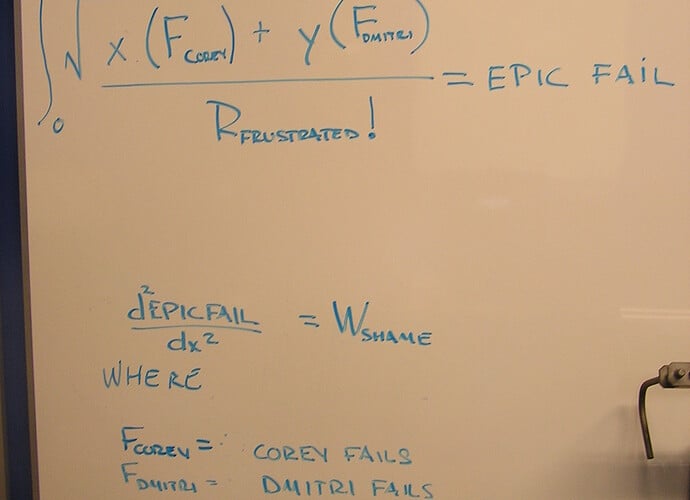 ∫₀ √ x (F_COREY) + y (F_DMITRI)
R_FRUSTRATED! = EPIC FAIL
d²EPICFAIL
dx² = W_SHAME
WHERE
F_COREY = COREY FAILS
F_DMITRI = DMITRI FAILS